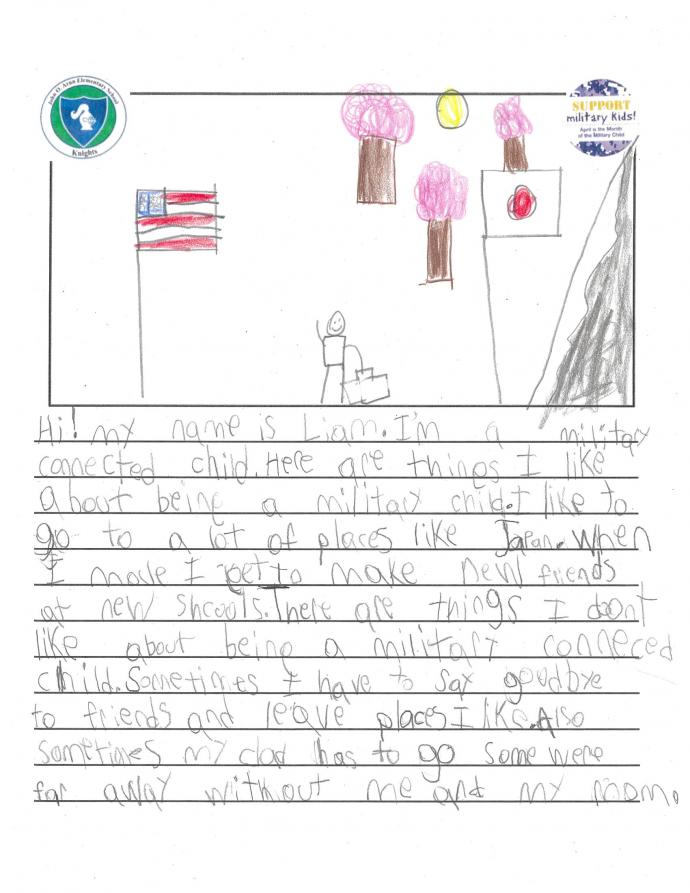 John O. Arnn Elementary School
Knights
SUPPORT
military kids!
April is the Month
of the Military Child
Hi! my name is Liam. I'm a military
connected child. Here are things I like
about being a military child. I like to
go to a lot of places like Japan. When
I move I get to make new friends
at new shcools. There are things I doont
like about being a military conneced
child. Sometimes I have to say goodbye
to friends and leave places I like. Also
sometimes my dad has to go some were
far away without me and my mom.